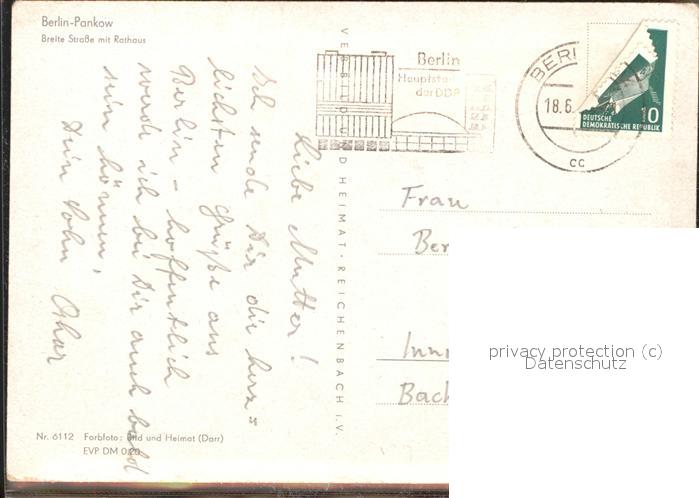 Berlin-Pankow
Breite Straße mit Rathaus
Liebe Mutter!
Ich sende Dir die herz=
lichsten Grüße aus
Berlin - hoffentlich
werde ich bei Dir auch bald
sein können,
Dein Sohn
Nr. 6112 Farbfoto: Bild und Heimat (Darr)
EVP DM 0,20
VERLAG BILD UND HEIMAT · REICHENBACH i. V.
Berlin
Hauptstadt
der DDR
BERL
18.6.
cc
10
DEUTSCHE
DEMOKRATISCHE REPUBLIK
Frau
Ber
Inn
Bach
privacy protection (c)
Datenschutz